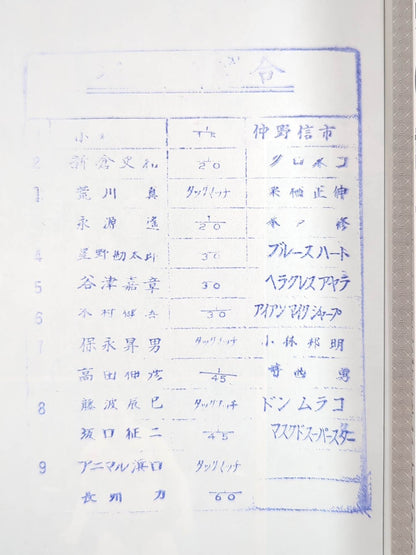 合
小 仲野信市
2 新倉史 1/20
3 荒川 真 タッグマッチ 栗栖正伸
永源 遙 1/20 修
4 星野勘太郎 30 ブルースハート
5 谷津嘉章 30 ヘラクレスアヤラ
6 木村健吾 1/30 アイアンマイクシャープ
7 保永昇男 タッグマッチ 小林邦明
高田伸彦 1/45 勇
8 藤波辰巳 タッグマッチ ドンムラコ
坂口征二 1/45 マスクドスーパースター
9 アニマル浜口 タッグマッチ
長州 力 1/60